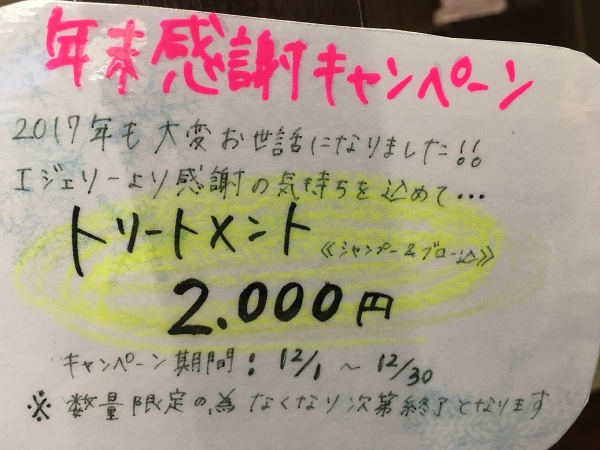 年末感謝キャンペーン
2017年も大変お世話になりました!!
エジェリーより感謝の気持ちを込めて…
トリートメント《シャンプー&ブロー込》
2.000円
キャンペーン期間：12/1～12/30
※数量限定の為なくなり次第終了となります